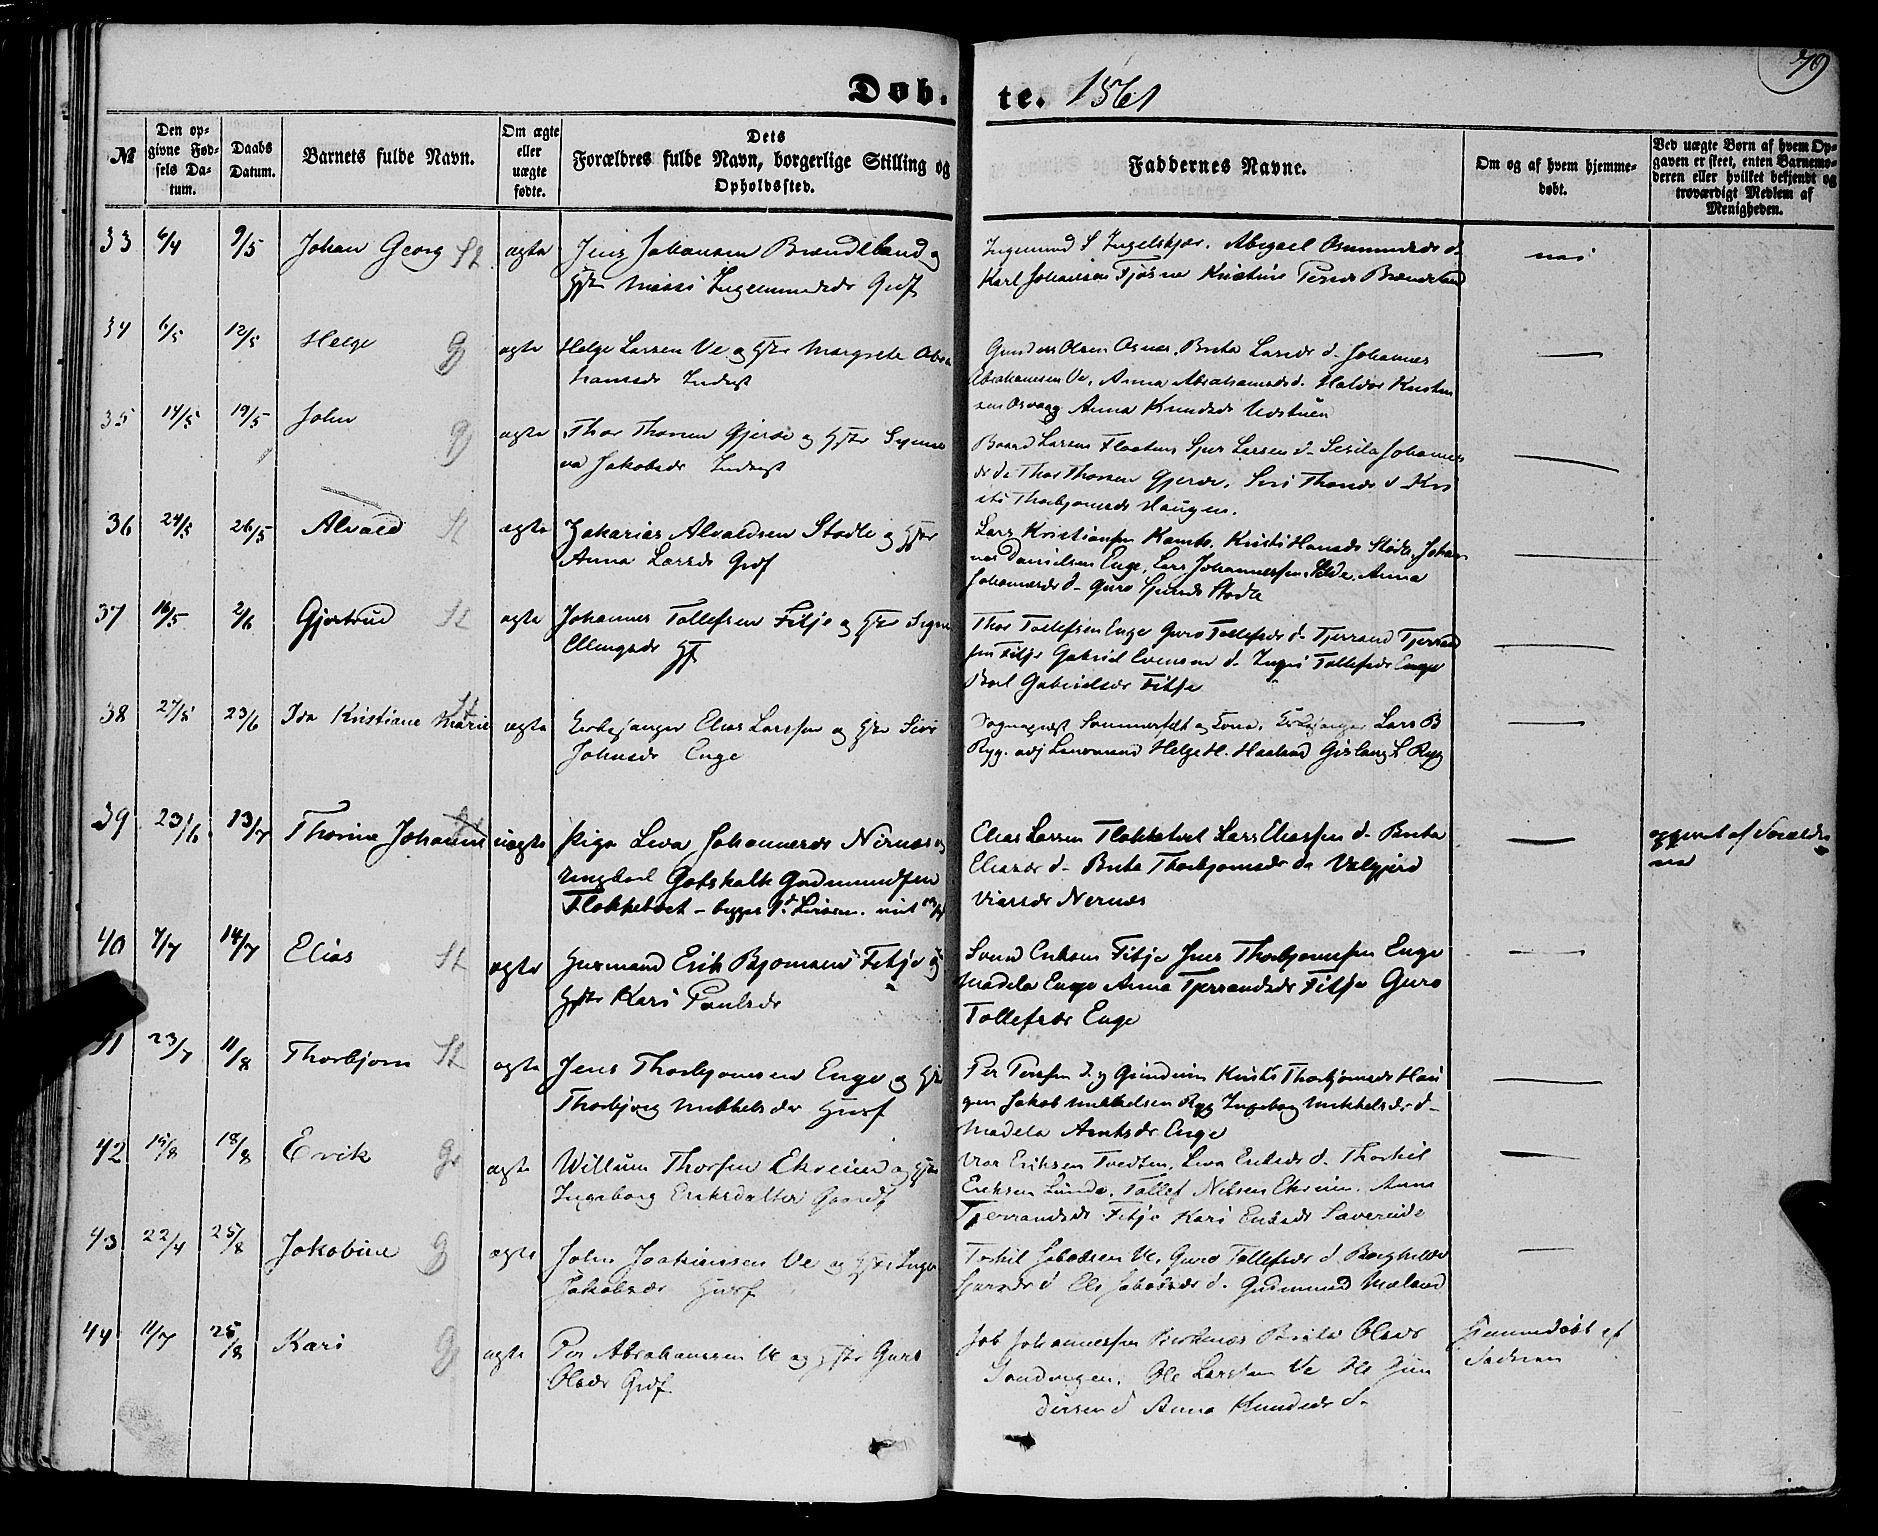 79
Døb. te. 1861
№
Den op-
givne Fød-
sels Da-
tum.
Daabs
Datum.
Barnets fulde Navn.
Om ægte
eller
uægte
fødte.
Dets
Forældres fulde Navn, borgerlige Stilling og
Opholdssted.
Faddernes Navne.
Om og af hvem hjemme-
døbt.
Ved uægte Børn af hvem Op-
gaven er skeet, enten Barnemo-
deren eller hvilket bekjendt og
troværdigt Medlem af
Menigheden.
33 6/4 9/5 Johan Georg St ægte Jens Johansen Brændeland og
Ingemund S Ingelskjær. Abigael Osmundsdr d-
nei
Hst Massi Ingemundsdr Grdf
Karl Johansen Fjøsne Kristine Persdr Brændeland
34 6/5 12/5 Helge G ægte Helge Larsen Ve og Hst Margrete Abra
hamsdr Inderst
Gunder Olsen Osnes. Brita Larsdr d- Johannes
Abrahamsen Ve, Anna Abrahamsdr d. Haldor Knuts
sen Osvaag Anna Knudsdr Udstuen
35 14/5 19/5 John G ægte Thor Thorsen Gjerde og Hst Synne
va Jakobsdr Inderst
Baard Larsen Flaatene Sjur Larsen d- Sesila Johannes
dr d- Thor Thorsen Gjerde. Siri Thorsdr d- Kri
sti Thorbjornsdr Haugen.
36 24/5 26/5 Alvald St ægte Zakarias Alvaldsen Stødle og Hst
Anna Larsdr Grdf
Lars Kristiansen Kambe. Kristi Hansdr Stødle, Johan
nes Danielsen Enge, Lars Johannessen Silde, Anna
Johannesdr d- Guro Sjursdr Stødle
37 16/5 2/6 Gjertrud St ægte Johannes Tollefsen Fitje og Hst Signe
Ellingsdr Hf
Thor Tollefsen Enge Guro Tollefsdr d- Tjerrand Tjerrand
sen Fitje Gabriel Evensen d- Inger Tollefsdr Enge
Boel Gabrielsdr Fitje
38 27/5 23/6 Ida Kristiane Marie St ægte Kirkesanger Elias Larssen og Hst Siri
Johnsdr Enge
Sognepræst Sommerfelt og Kona, Kirkesanger Lars B
Ryg. adj Lensmand Helge H. Haaland Gislaug L Ryg
39 23/6 13/7 Thorine Johanne uægte Pige Liva Johannesdr Nernæs og
Ungkarl Gotskalk Gudmundsen
Flokketvet - begges 1ste Leierm.
Elias Larsen Flokketvet Lars Eliassen d- Brita
Eliasdr d- Brita Thorbjornsdr d- Valgjerd
Viarsdr Nernæs
opgivet af Foreldre
ne
40 7/7 14/7 Elias St ægte Husmand Erik Bjornsen Fitje og
Hst Kari Paulsdr
Svend Eriksen Fitje Jens Thorbjornsen Enge
Madela Enge Anna Tjerrandsdr Fitje Guro
Tollefsdr Enge
41 23/7 11/8 Thorbjorn St ægte Jens Thorbjornsen Enge og Hst
Thorbjorg Mikkelsdr Husf
Per Perssen d. y Grindeim Kristi Thorbjornsdr Hau
gen Jakob Mikkelsen Ryg Ingeborg Mikkelsdr d-
Madela Arntsdr Enge
42 15/8 18/8 Erik G ægte Willum Thorsen Ekreim og Hst
Ingeborg Eriksdatter Gaardf
Viar Eriksen Tvedten, Liva Eriksdr d. Thorkil
Eriksen Lunde. Tollef Nilsen Ekreim. Anna
Tjerrandsdr Fitje Kari Eriksdr Savereide
43 22/4 25/8 Jakobine G ægte John Joakimsen Ve og Hst Inger
Jakobsdr Husf
Torkil Jakobsen Ve, Guro Tollefsdr d. Borghilde
Sjursdr d Eli Jakobsdr d- Gudmund Mæland
44 11/7 25/8 Kari G ægte Per Abrahamsen Ve og Hst Guro
Olsdr Grdf.
Job Johannessen Nernæs Brita Olsdr
Sandvigen. Ole Larssen Ve Ole Gun
dersen d Anna Knudsdr d-
Hjemmedøbt af
Faderen